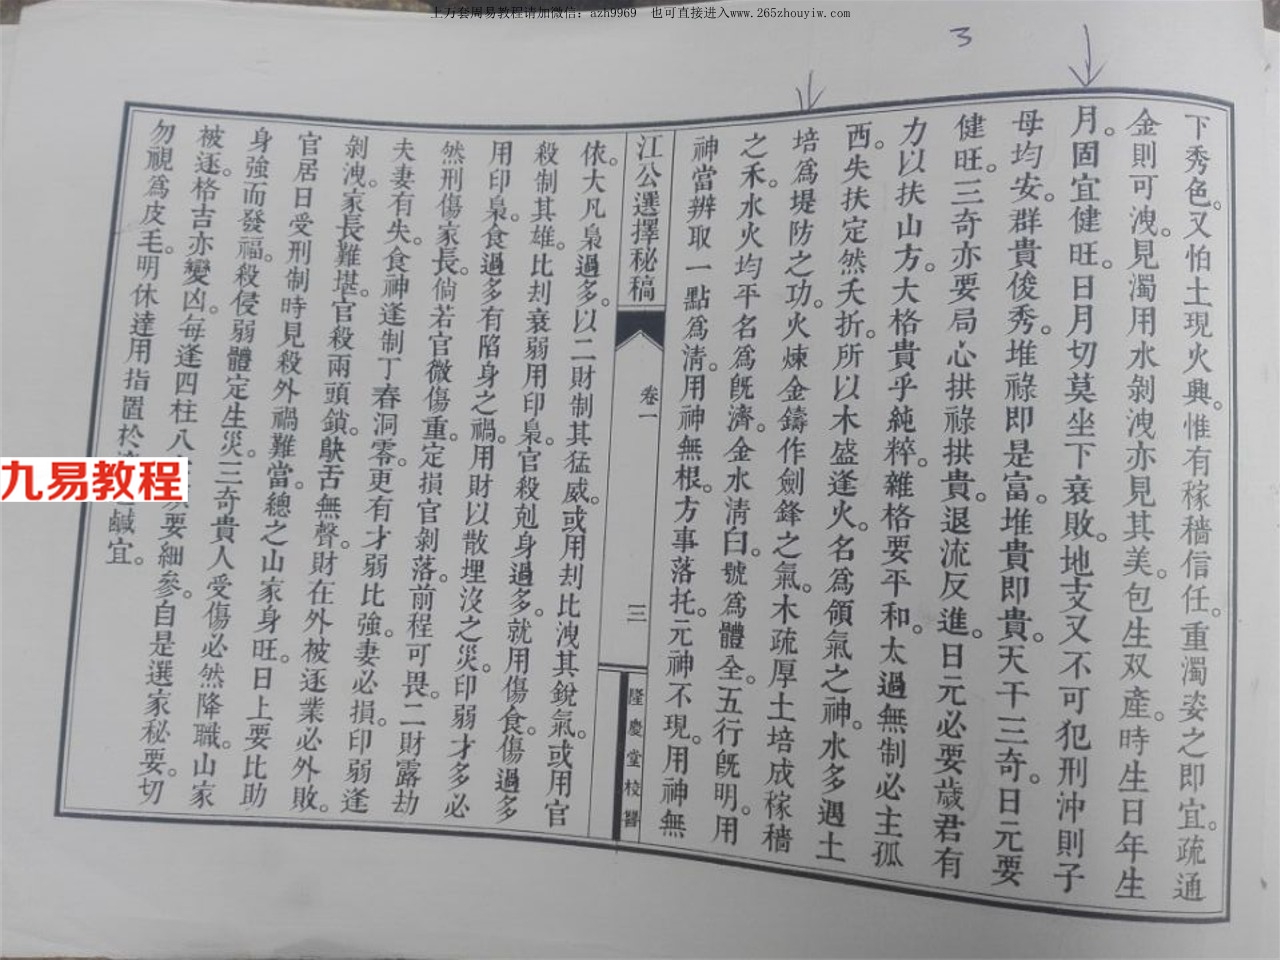 上万套周易教程请加微信：azh9969 也可直接进入www.265zhouyiw.com
3
下秀色。又怕土現火興。惟有稼穡信任。重濁姿之即宜。疏通
金則可洩。見濁用水剝洩亦見其美。包生双產。時生日年生
月。固宜健旺。日月切莫坐下衰敗。地支又不可犯刑沖則子
母均安。群貴俊秀。堆祿即是富。堆貴即貴。天干三奇。日元要
健旺。三奇亦要局心拱祿拱貴。退流反進。日元必要歲君有
力以扶山方。大格貴乎純粹。雜格要平和。太過無制必主孤
西。失扶定然夭折。所以木盛逢火。名為領氣之神。水多遇土
培為堤防之功。火煉金鑄作劍鋒之氣。木疏厚土培成稼穡
之禾。水火均平名為既濟。金水清白。號為體全。五行既明。用
神當辨取一點為清。用神無根。方事落托。元神不現。用神無
江公選擇秘稿
卷一
三
隆慶堂校
依。大凡梟過多。以二財制其猛威。或用刦比洩其銳氣。或用官
殺制其雄。比刦衰弱用印梟。官殺剋身過多。就用傷食。傷過多
用印梟。食過多有陷身之禍。用財以散埋沒之災。印弱才多必
然刑傷家長。倘若官微傷重。定損官剝落。前程可畏。二財露劫
夫妻有失。食神逢制丁春洞零。更有才弱比強。妻必損。印弱逢
剝洩。家長難堪。官殺兩頭鎖。鴃舌無聲。財在外被逐業必外敗。
官居日受刑制時見殺外禍難當。總之山家身旺。日上要比助
身強而發福。殺侵弱體定生災。三奇貴人受傷必然降職。山家
被逐。格吉亦變凶。每逢四柱八要細參。自是選家秘要。切
勿視為皮毛。明休達用指置於鹹宜。
九易教程